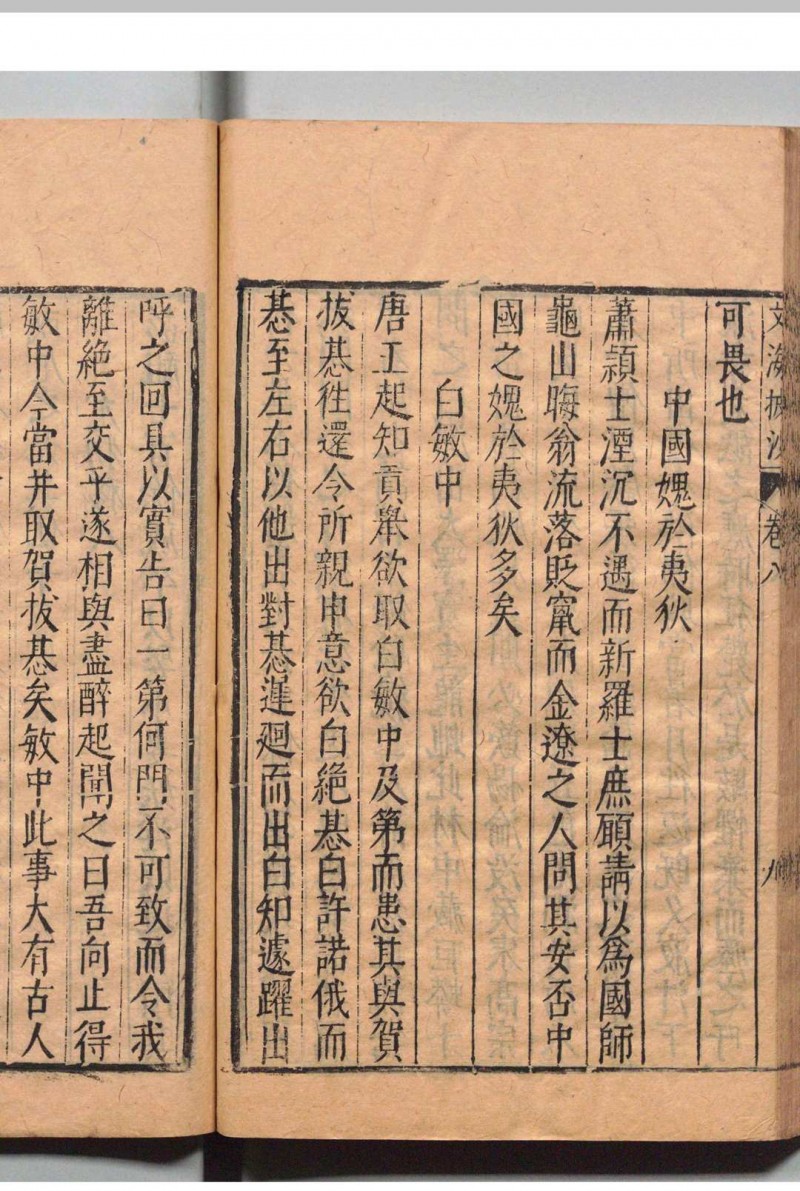 文海披沙 卷八
可畏也
中國媿於夷狄
蕭潁士湮沉不遇而新羅士庶願請以為國師
龜山晦翁流落貶竄而金遼之人問其安否中
國之媿於夷狄多矣
白敏中
唐王起知貢舉欲取白敏中及第而患其與賀
拔惎徃還令所親申意欲白絕惎白許諾俄而
惎至左右以他出對惎遲廻而出白知遽躍出
呼之回具以實告曰一第何門不可致而令我
離絕至交乎遂相與盡醉起聞之曰吾向止得
敏中今當并取賀拔惎矣敏中此事大有古人